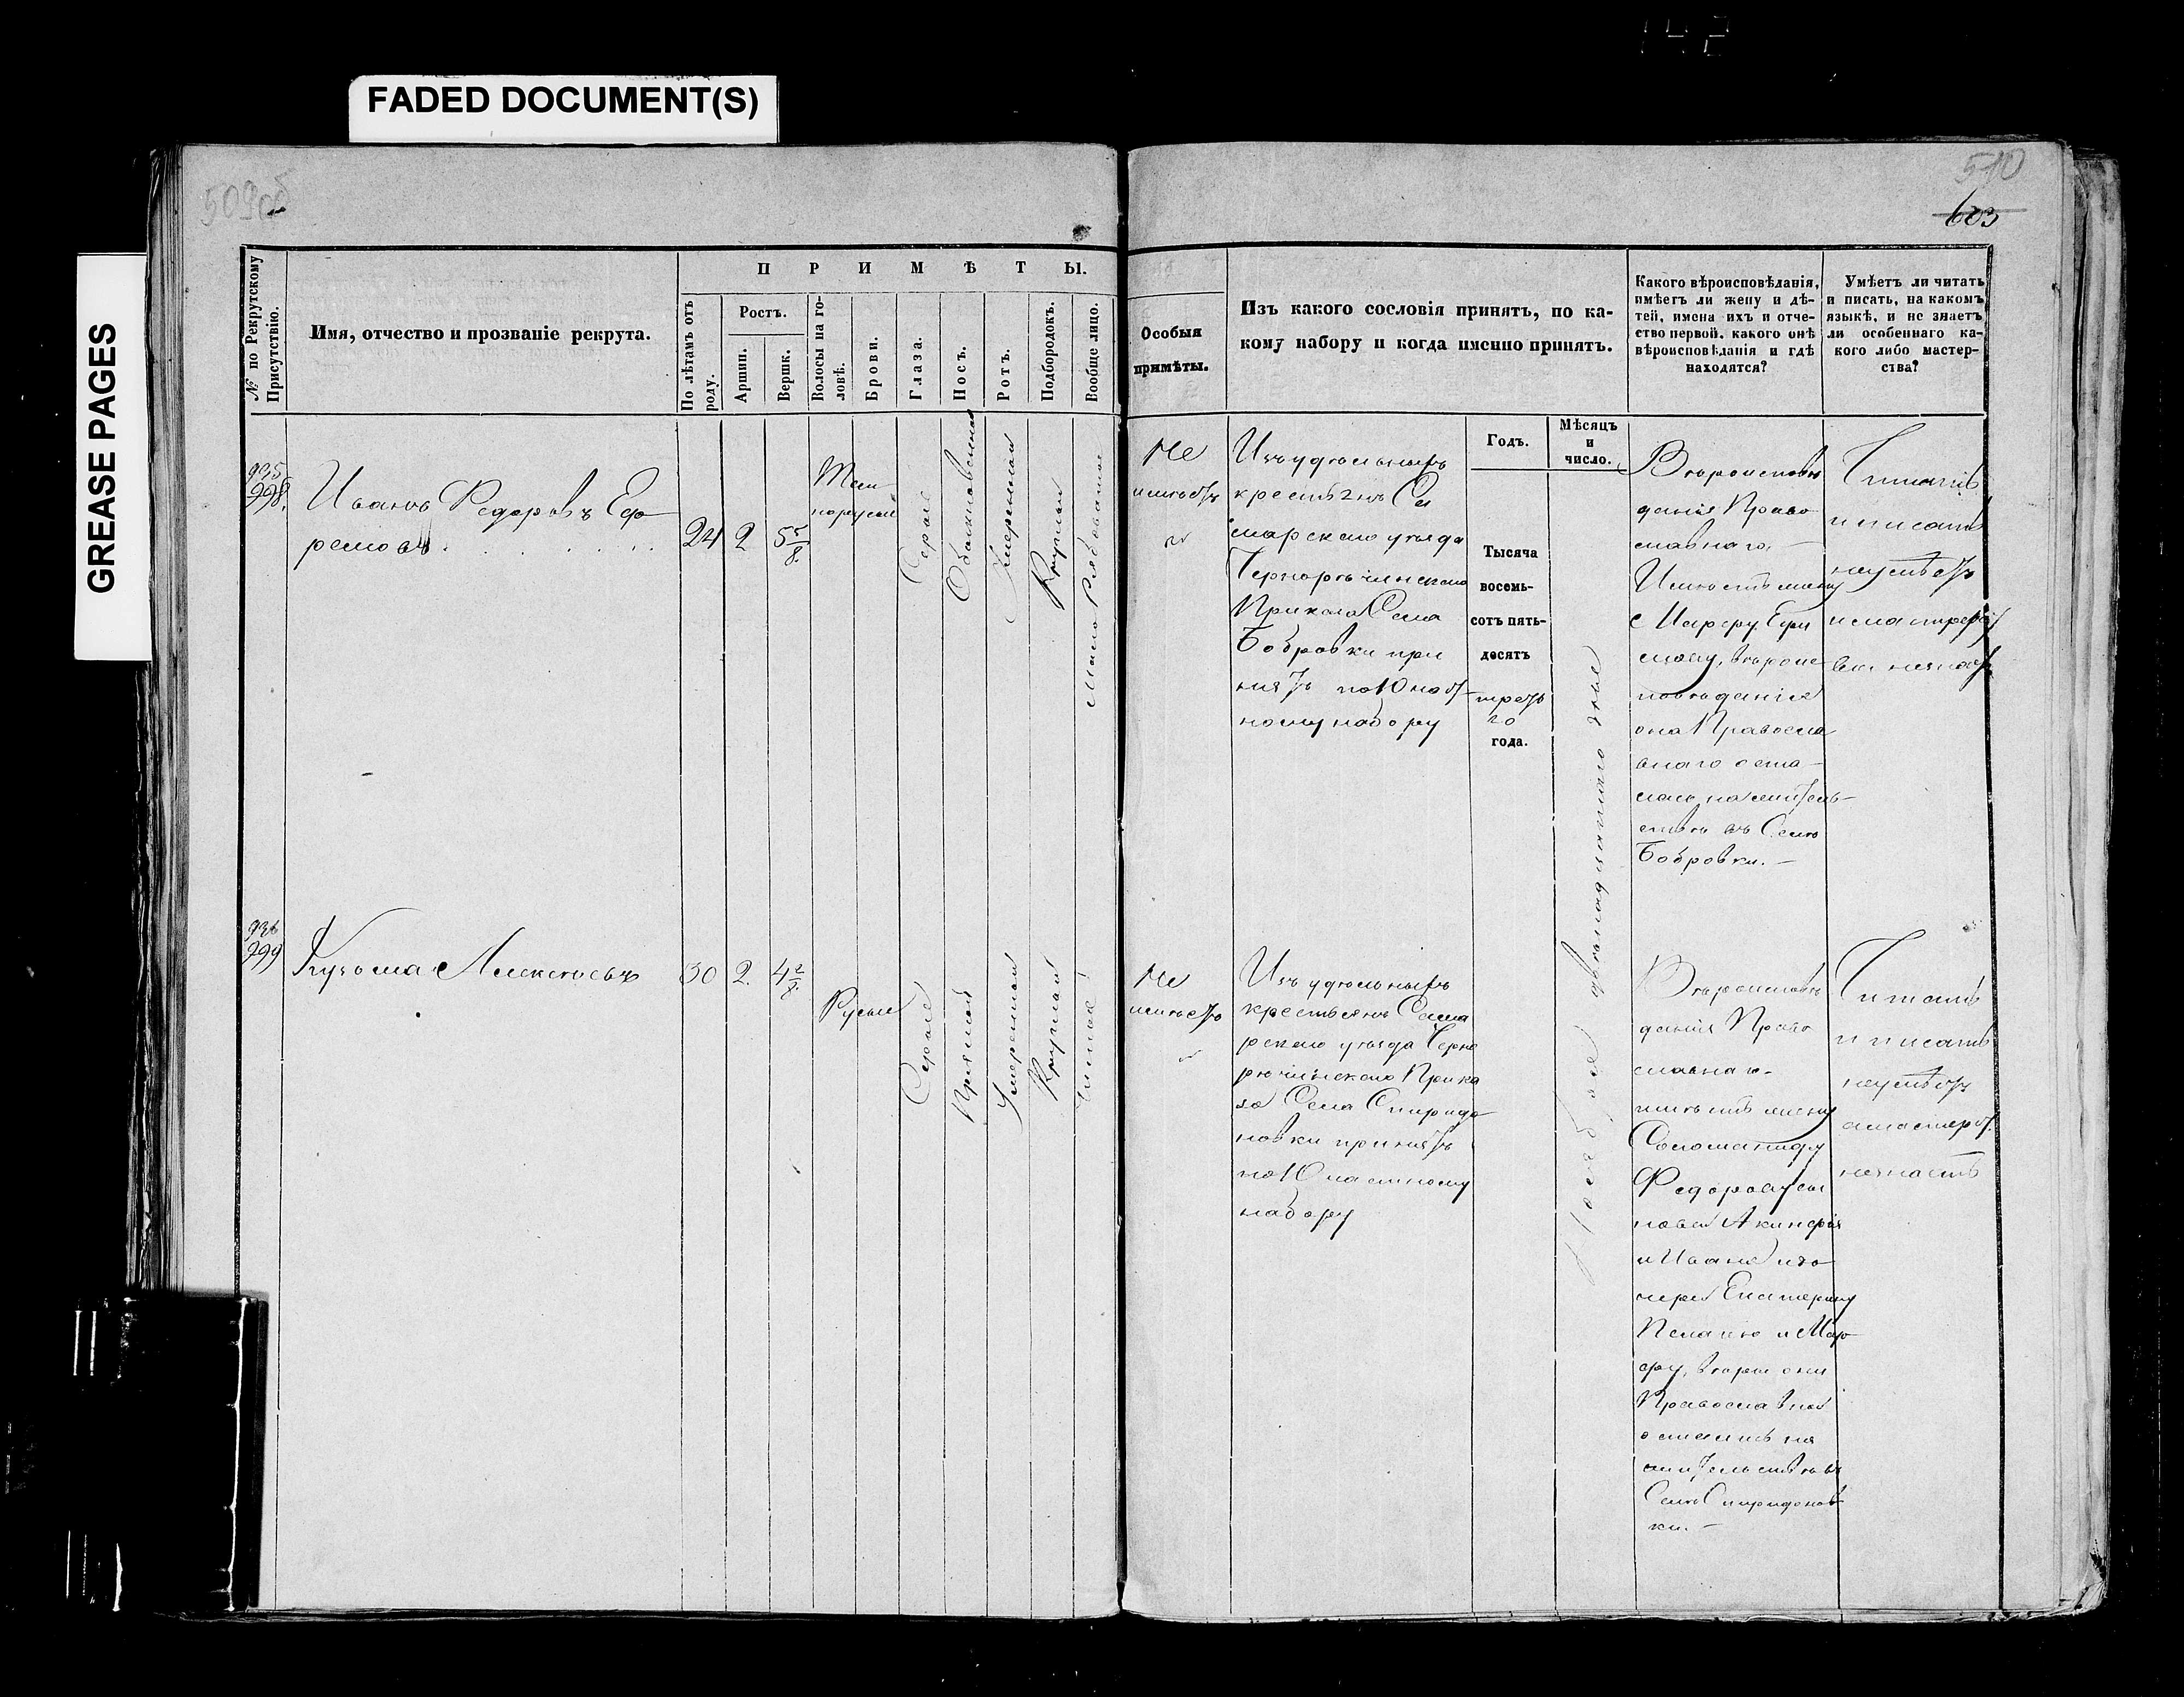 142
FADED DOCUMENT(S)
GREASE PAGES
509об
510
603
№ по Рекрутскому Присутствію.
Имя, отчество и прозваніе рекрута.
ПРИМѢТЫ.
По лѣтамъ отъ роду.
Ростъ.
Аршин.
Вершк.
Волосы на головѣ.
Брови.
Глаза.
Носъ.
Ротъ.
Подбородокъ.
Вообще лицо.
Особыя
примѣты.
Изъ какого сословія принятъ, по ка-
кому набору и когда именно принятъ.
Какого вѣроисповѣданія,
имѣетъ ли жену и дѣ-
тей, имена ихъ и отче-
ство первой, какого онѣ
вѣроисповѣданія и гдѣ
находятся?
Умѣетъ ли читать
и писать, на какомъ
языкѣ, и не знаетъ
ли особеннаго ка-
кого либо мастер-
ства?
Годъ.
Мѣсяцъ
и
число.
935
998.
Иванъ Федоровъ Еф
ремовъ
24 2 5 5/8.
Тем
норусые
Серые
Обыкновенной
Умеренной
Круглой
Мало Рябоватое
Не
имеетъ
Изъ удельныхъ
крестьянъ Са
марскаго уезда
Чернореченскаго
Приказа Села
Бобровки при
нятъ по 10 част
ному набору
Тысяча
восемь-
сотъ пять-
десятъ
третья
го
года.
Ноября двенадцатаго дня
Вероиспове
данія Право
славнаго.
Имеетъ жену
Марфу Ефи
мову, вероис
поведанія
она Правосла
внаго оста
лась на житель
стве въ Селе
Бобровки.
Читать
и писать
неумеетъ
и мастерст
ва незнаетъ
936
999
Кузьма Алексеевъ
30 2. 4 2/8.
Русые
Серые
Прямой
Умеренной
Круглой
Чистое
Не
имеетъ
Изъ удельныхъ
крестьянъ Сама
рскаго уезда Черно
реченскаго Прика
за Села Спиридо
новки принятъ
по 10 частному
набору
Вероиспове
данія Право
славнаго
имеетъ жену
Соломаниду
Федорову сы
новей Акинфія
и Ивана и до
черей Екатерину
Пелагею и Мар
фу, веры они
Православной
остались на
жительстве въ
Селе Спиридонов
ки.
Читать
и писать
неумеетъ
а мастерст.
незнаетъ